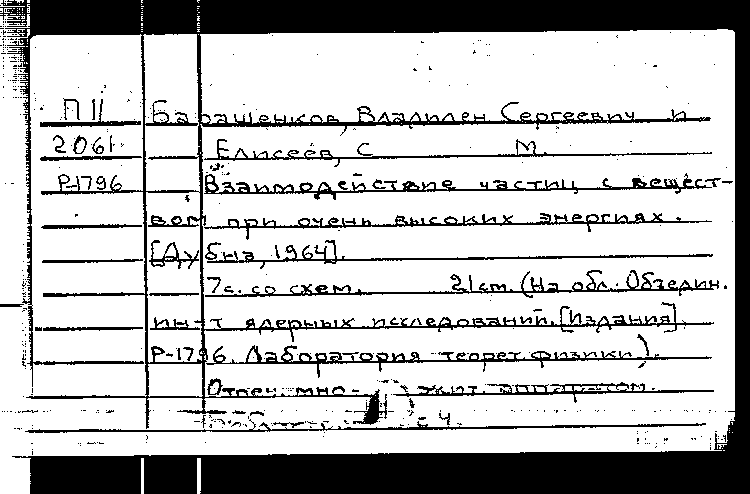 П 11 Барашенков, Владилен Сергеевич и
2061 Елисеев, С М.
Р-1796 Взаимодействие частиц с вещест-
вом при очень высоких энергиях.
[Дубна, 1964].
7с. со схем. 21см. (На обл.: Объедин.
ин-т ядерных исследований. [Издания].
Р-1796. Лаборатория теорет. физики).
Отпеч. мно- жит. аппаратом.
с 4.